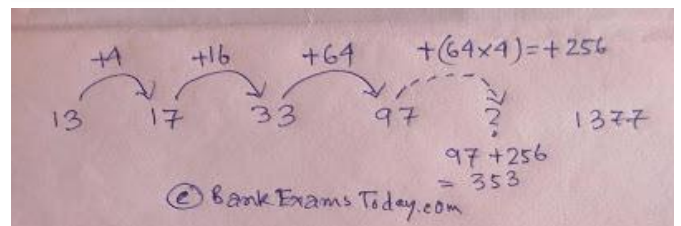 +4 +16 +64 +(64×4)=+256
13 17 33 97 ? 1377
97+256
= 353
© BankExamsToday.com